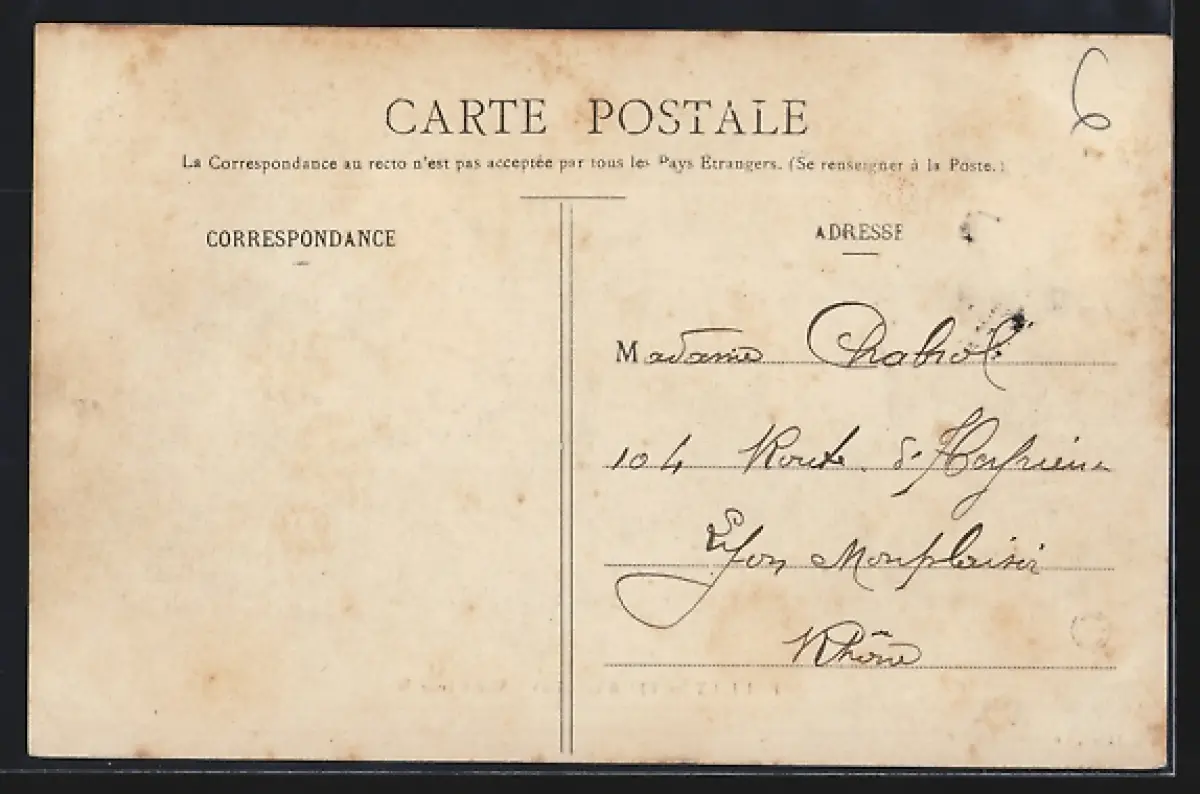 6
CARTE POSTALE
La Correspondance au recto n'est pas acceptée par tous les Pays Etrangers. (Se renseigner à la Poste.)
CORRESPONDANCE
ADRESSE
Madame Chabrol
104 Route d'Heyrieux
Lyon Monplaisir
Rhône